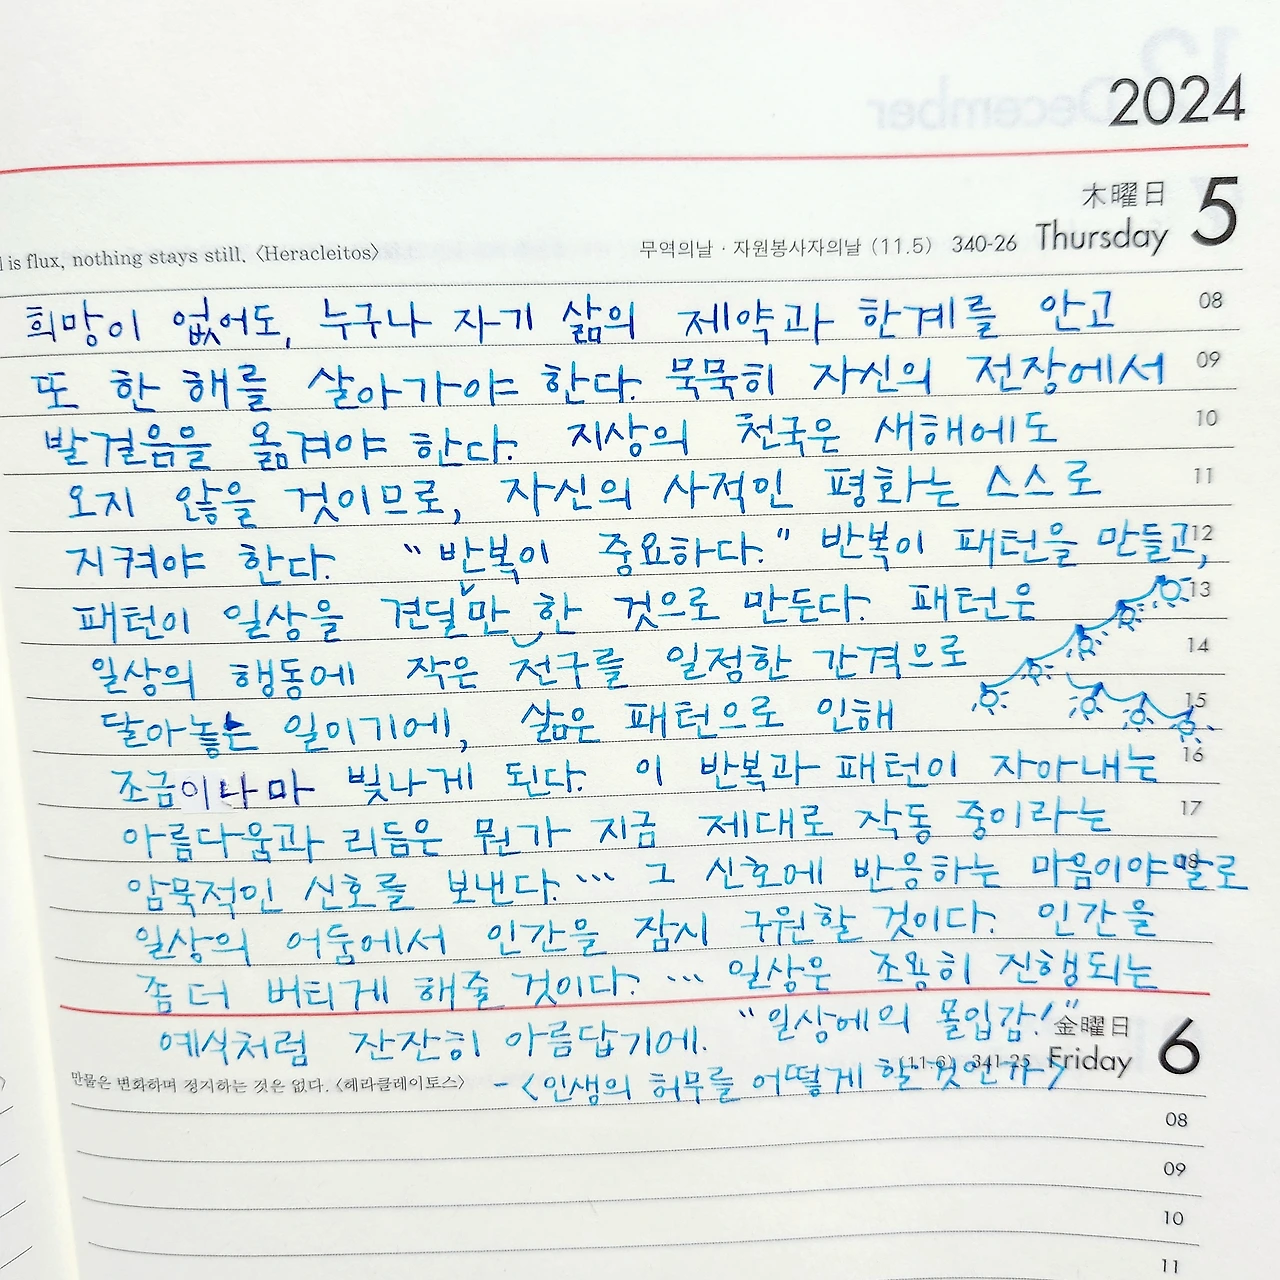 2024
木曜日
Thursday 5
is flux, nothing stays still. 〈Heracleitos〉 무역의날 · 자원봉사자의날 (11.5) 340-26
희망이 없어도, 누구나 자기 삶의 제약과 한계를 안고 08
또 한 해를 살아가야 한다. 묵묵히 자신의 전장에서 09
발걸음을 옮겨야 한다. 지상의 천국은 새해에도 10
오지 않을 것이므로, 자신의 사적인 평화는 스스로 11
지켜야 한다. "반복이 중요하다." 반복이 패턴을 만들고, 12
패턴이 일상을 견딜만 한 것으로 만든다. 패턴은 13
일상의 행동에 작은 전구를 일정한 간격으로 14
달아놓는 일이기에, 삶은 패턴으로 인해 15
조금이나마 빛나게 된다. 이 반복과 패턴이 자아내는 16
아름다움과 리듬은 뭔가 지금 제대로 작동 중이라는 17
암묵적인 신호를 보낸다. … 그 신호에 반응하는 마음이야말로 18
일상의 어둠에서 인간을 잠시 구원할 것이다. 인간을
좀 더 버티게 해줄 것이다. … 일상은 조용히 진행되는
예식처럼 잔잔히 아름답기에. "일상에의 몰입감!"
金曜日
Friday 6
만물은 변화하며 정지하는 것은 없다. 〈헤라클레이토스〉 (11.6) 341-25
- <인생의 허무를 어떻게 할 것인가>
08
09
10
11